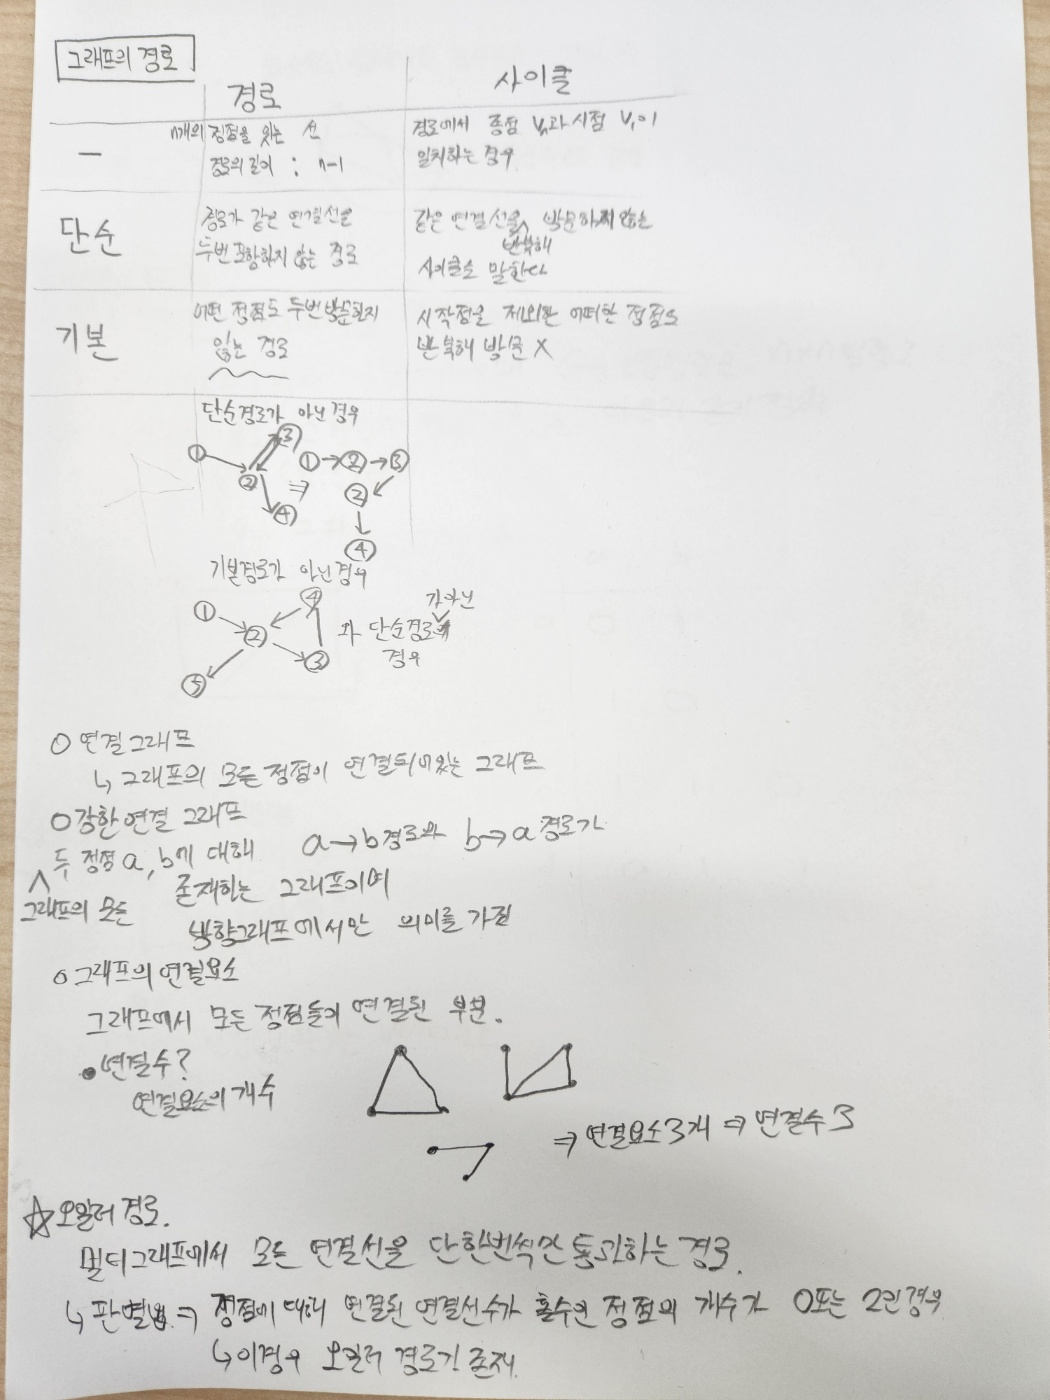 그래프의 경로
경로 사이클
— n개의 정점을 잇는 선
경로의 길이 : n-1
경로에서 종점 Vn과 시점 V1이
일치하는 경우
단순 경로가 같은 연결선을
두번 포함하지 않는 경로
같은 연결선을 반복해 방문하지 않는
사이클을 말한다
기본 어떤 정점도 두번 방문하지
않는 경로
시작점을 제외한 어떠한 정점도
반복해 방문 X
단순경로가 아닌 경우
① ② ③ ④ ⇒ ① → ② → ③
②
④
기본경로가 아닌경우
① ② ③ ④ ⑤
와 단순경로가아닌
경우
○ 연결그래프
↳ 그래프의 모든 정점이 연결되어있는 그래프
○ 강한 연결 그래프
그래프의 모든 두 정점 a, b에 대해 a→b경로와 b→a경로가
존재하는 그래프이며
방향그래프에서만 의미를 가짐
○ 그래프의 연결요소
그래프에서 모든 정점들이 연결된 부분.
● 연결수?
연결요소의 개수
⇒ 연결요소 3개 ⇒ 연결수 3
☆ 오일러 경로.
멀티그래프에서 모든 연결선을 단 한번씩만 통과하는 경로.
↳ 판별법 ⇒ 정점에 대해 연결된 연결선수가 홀수인 정점의 개수가 0또는 2인 경우
↳ 이경우 오일러 경로가 존재.